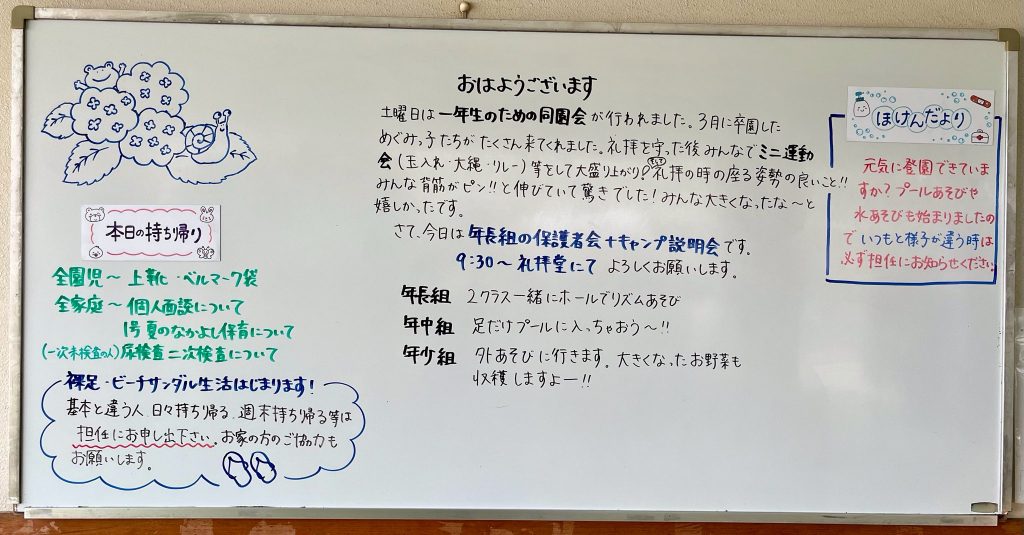 おはようございます
土曜日は一年生のための同園会が行われました。3月に卒園した
めぐみっ子たちがたくさん来てくれました。礼拝を守った後みんなでミニ運動
会(玉入れ・大縄・リレー)等をして大盛り上がり♪そして礼拝の時の座る姿勢の良いこと!!
みんな背筋がピン!!と伸びていて驚きでした!みんな大きくなったな〜と
嬉しかったです。
さて、今日は年長組の保護者会+キャンプ説明会です。
9:30〜礼拝堂にて よろしくお願いします。
年長組 2クラス一緒にホールでリズムあそび
年中組 足だけプールに入っちゃおう〜!!
年少組 外あそびに行きます。大きくなったお野菜も
収穫しますよー!!
本日の持ち帰り
全園児〜上靴・ベルマーク袋
全家庭〜個人面談について
1号夏のなかよし保育について
(一次未検査の人)尿検査二次検査について
裸足・ビーチサンダル生活はじまります!
基本と違う人、日々持ち帰る、週末持ち帰る等は
担任にお申し出下さい。お家の方のご協力も
お願いします。
ほけんだより
元気に登園できていま
すか?プールあそびや
水あそびも始まりましたの
でいつもと様子が違う時は
必ず担任にお知らせください